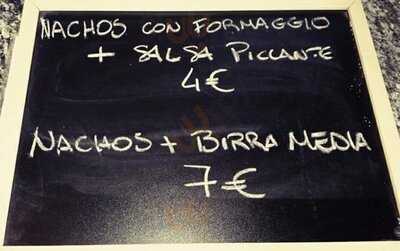 NACHOS CON FORMAGGIO
+ SALSA PICCANTE
4€
NACHOS + BIRRA MEDIA
7€